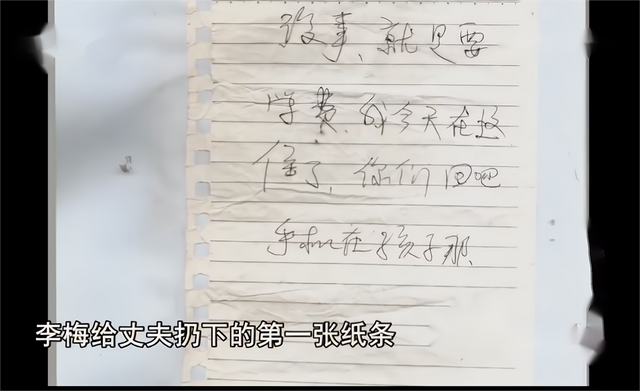 没事、就是要
学费、我今天在这
住了，你们回吧
手机在孩子那、
李梅给丈夫扔下的第一张纸条